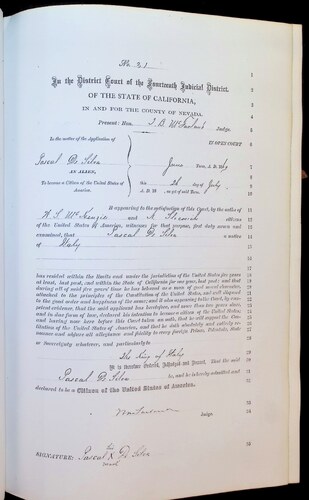 No. 21
In the District Court of the Fourteenth Judicial District,
OF THE STATE OF CALIFORNIA,
IN AND FOR THE COUNTY OF NEVADA.
Present: Hon. T B McFarland
Judge.
In the matter of the Application of
IN OPEN COURT
Pascal De Silva
June Term, A. D. 186
AN ALIEN,
To become a Citizen of the United States of America.
this 26 day of July
A. D. 18 as yet of said Term.
It appearing to the satisfaction of this Court, by the oaths of
and citizens
of the United States of America, witnesses for that purpose, duly sworn and
examined, that Pascal De Silva a native
of Italy
has resided within the limits and under the jurisdiction of the United States five years
at least, last past, and within the State of California for one year, last past; and that
during all of said five years' time he has behaved as a man of good moral character,
attached to the principles of the Constitution of the United States, and well disposed
to the good order and happiness of the same; and it also appearing to the Court, by competent
evidence, that the said applicant has heretofore, and more than two years since,
and in due form of law, declared his intention to become a citizen of the United States;
and having now here before this Court taken an oath, that he will support the Constitution
of the United States of America, and that he doth absolutely and entirely renounce
and abjure all allegiance and fidelity to every foreign Prince, Potentate, State
or Sovereignty whatever, and particularly to
The King of Italy
It is therefore Ordered, Adjudged and Decreed, That the said
Pascal De Silva be, and he is hereby admitted and
declared to be a Citizen of the United States of America.
Judge.
SIGNATURE: Pascal his x mark De Silva